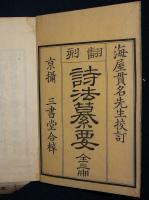 海屋貫名先生校訂
翻刻
詩法纂要 全三冊
京攝 三書堂合梓